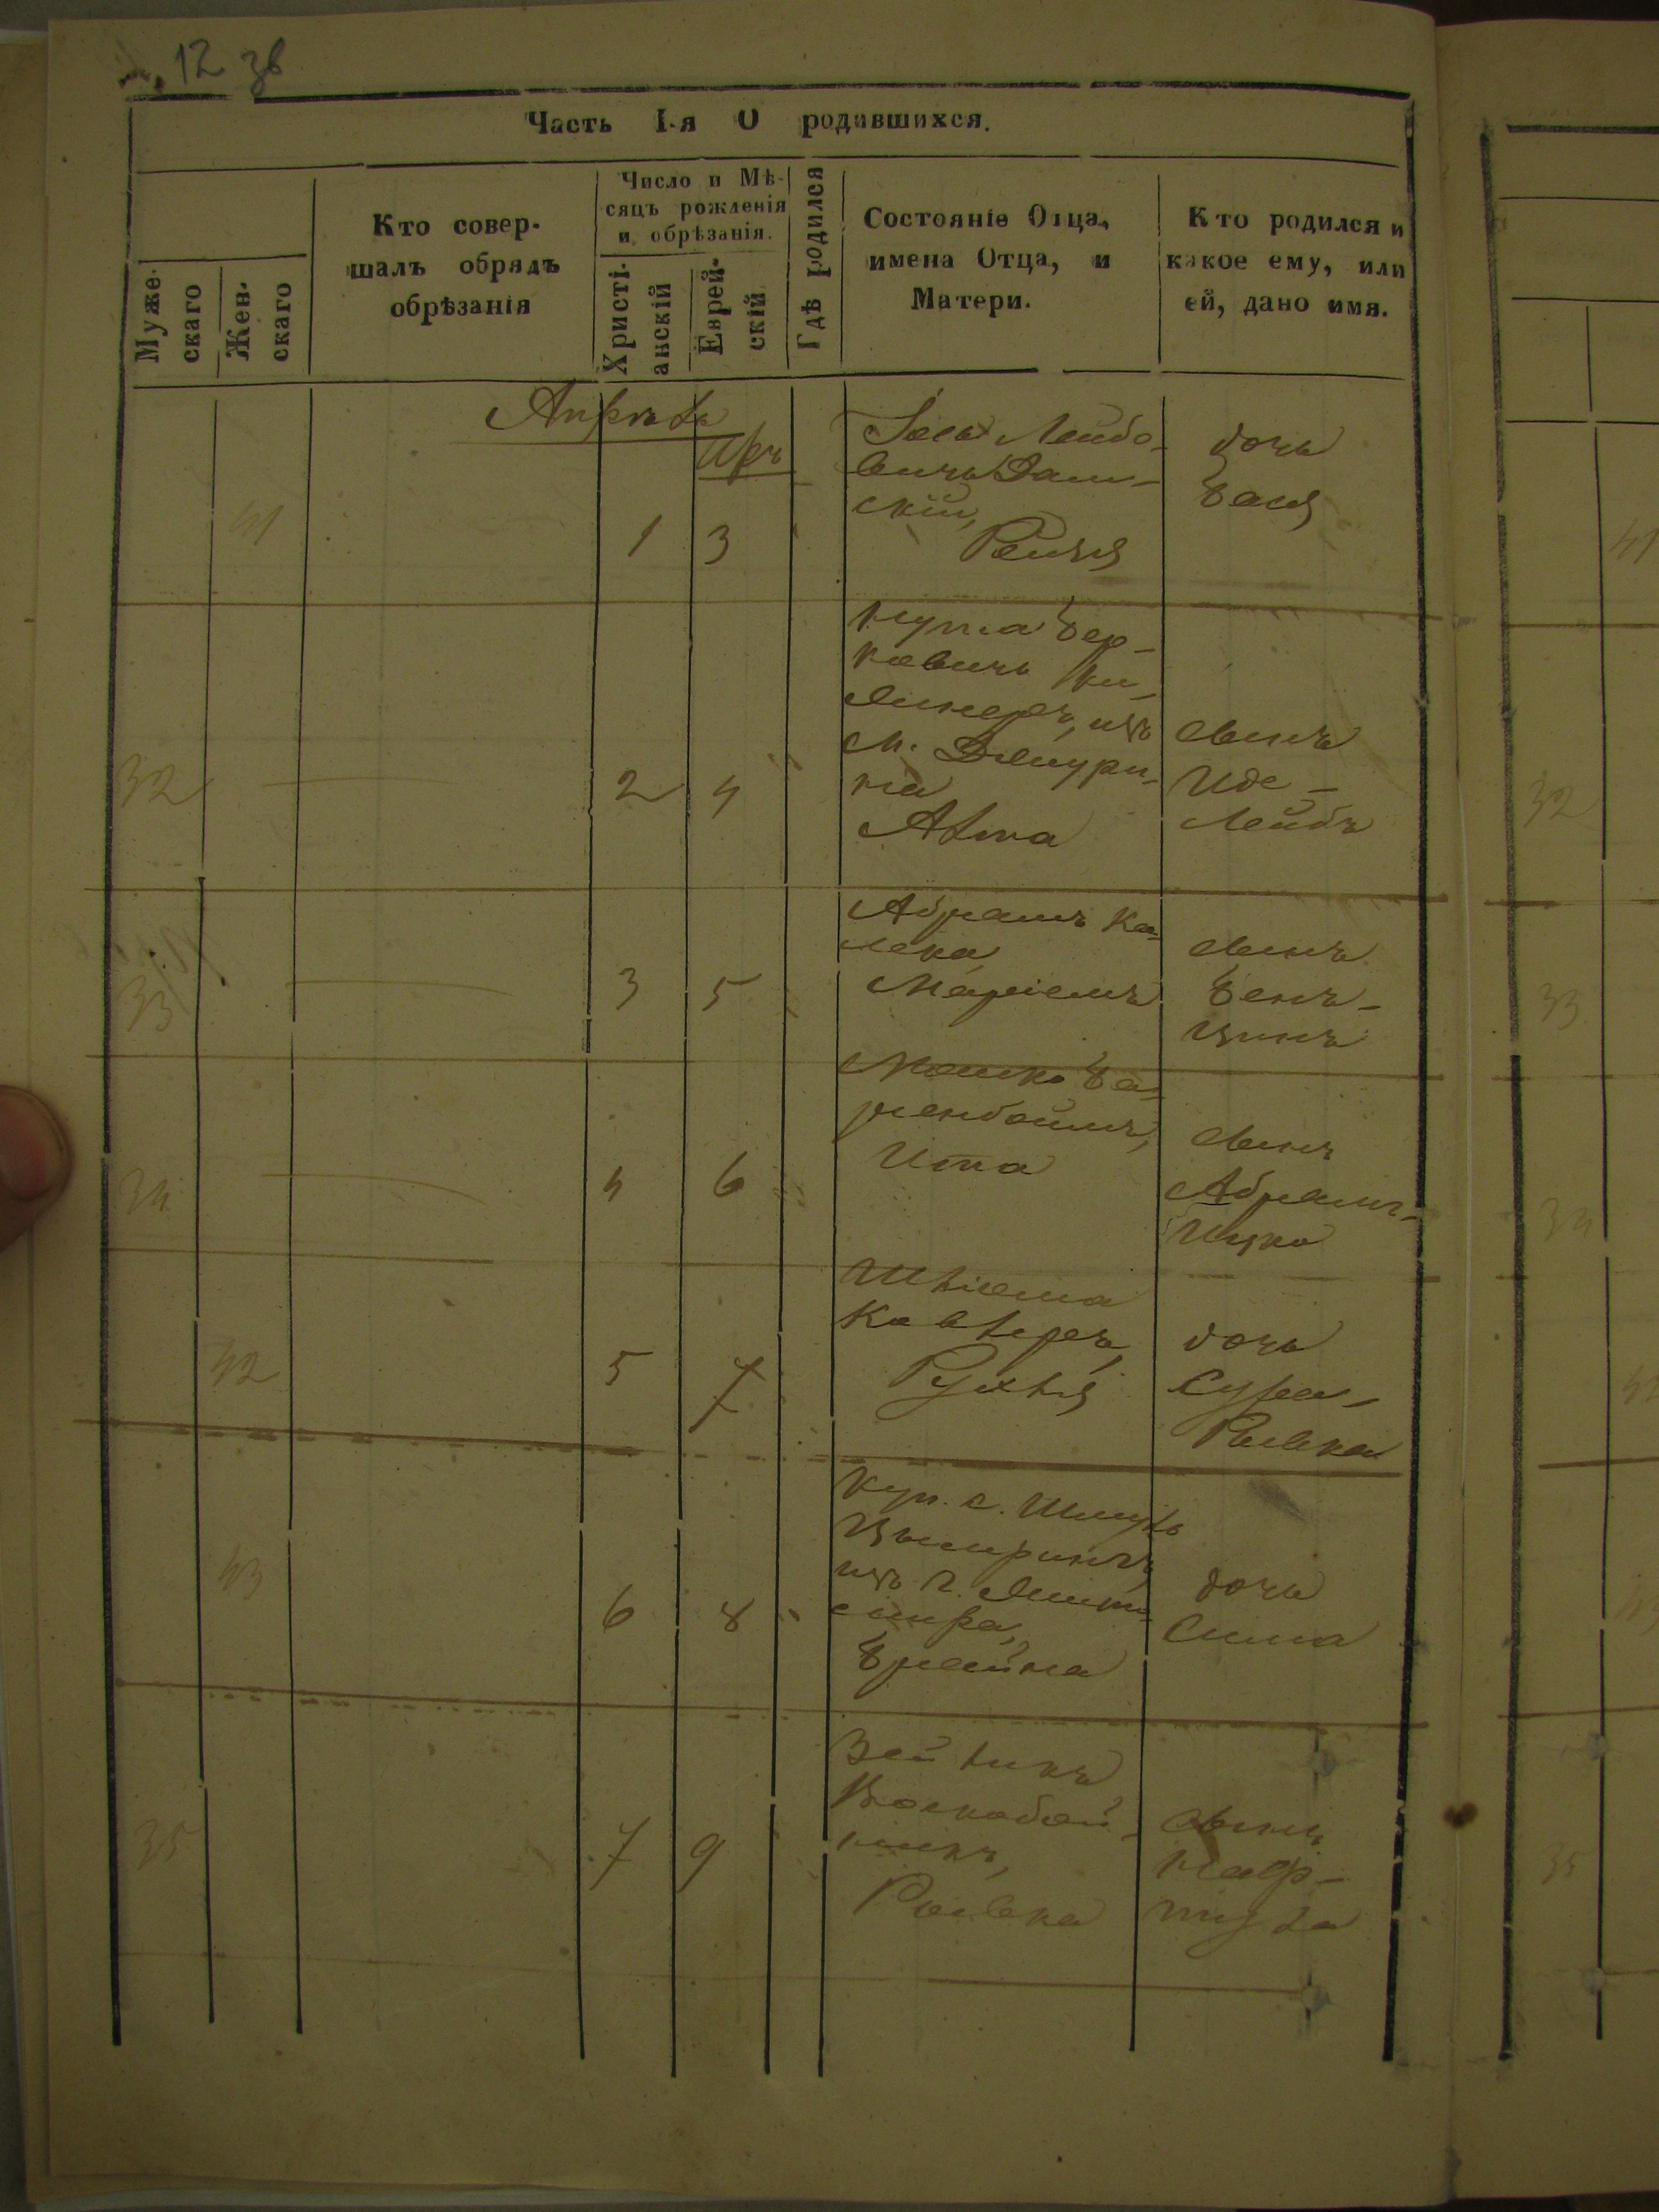 12 зв
Часть I-я О родившихся.
Мужескаго
Женскаго
Кто совер-
шалъ обрядъ
обрѣзанія
Число и Мѣ-
сяцъ рожденія
и обрѣзанія.
Христі-
анскій
Еврей-
скій
Гдѣ родился
Состояніе Отца,
имена Отца, и
Матери.
Кто родился и
какое ему, или
ей, дано имя.
Апрѣль
Иръ
41
1 3
Лейбо-
вичъ
скій,
Рейзя
дочь
Бася
32
2 4
Нута Бер-
ковичъ
изъ
м.
на
сынъ
Иде-
Лейбъ
33
3 5
Абрамъ Ка-
лека
Маріемъ
сынъ
Бенъ-
ціинъ
34
4 6
Мошко Ба-
ренбоймъ,
Ита
сынъ
Абрамъ-
Ицко
42
5 7
Шлиома
Ковлеръ,
Рухля
дочь
Сура-
Ривка
43
6 8
Куп. с. Шмуль
Цымрингъ
изъ г. Жито-
мира,
Брайна
дочь
Сима
35
7 9
Зейликъ
Воскобой-
никъ,
Ривка
сынъ
Наф-
тула